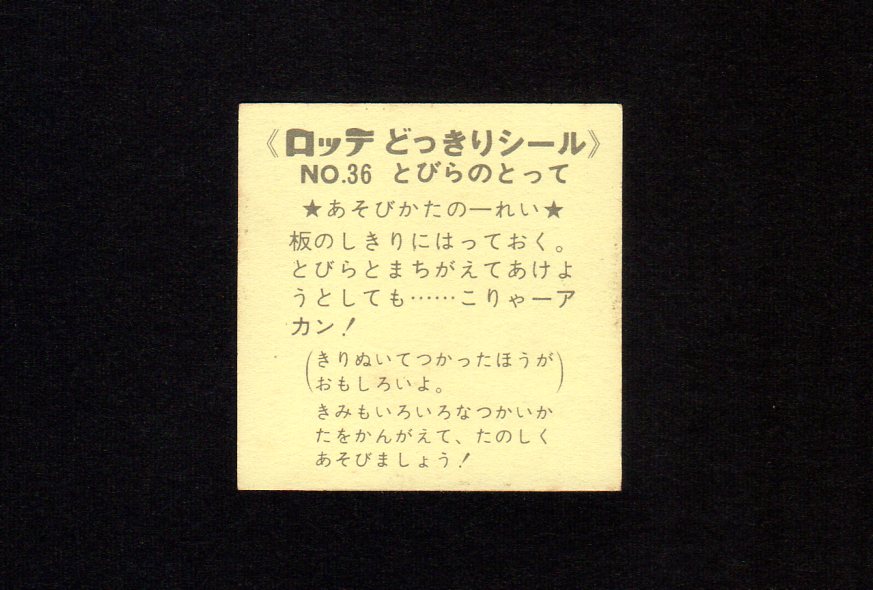 《ロッテ どっきりシール》
NO.36 とびらのとって
★あそびかたの一れい★
板のしきりにはっておく。
とびらとまちがえてあけよ
うとしても……こりゃーア
カン!
(きりぬいてつかったほうが
おもしろいよ。)
きみもいろいろなつかいか
たをかんがえて、たのしく
あそびましょう!